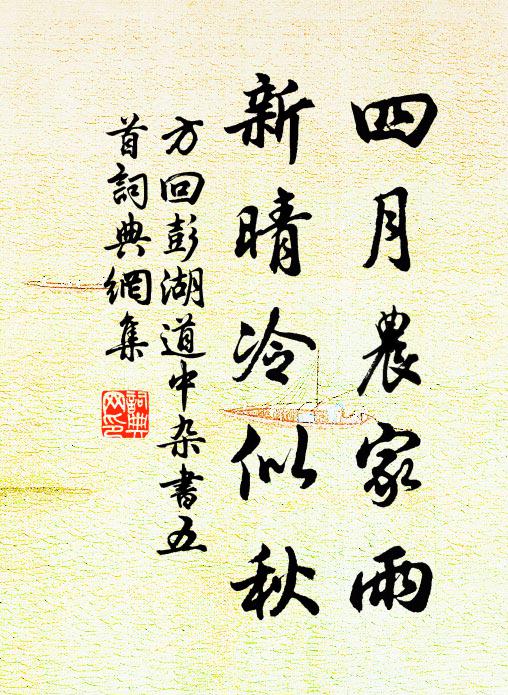 四月農家雨
新晴冷似秋
方回彭湖道中杂書五
首詞典網集
詞典
网印